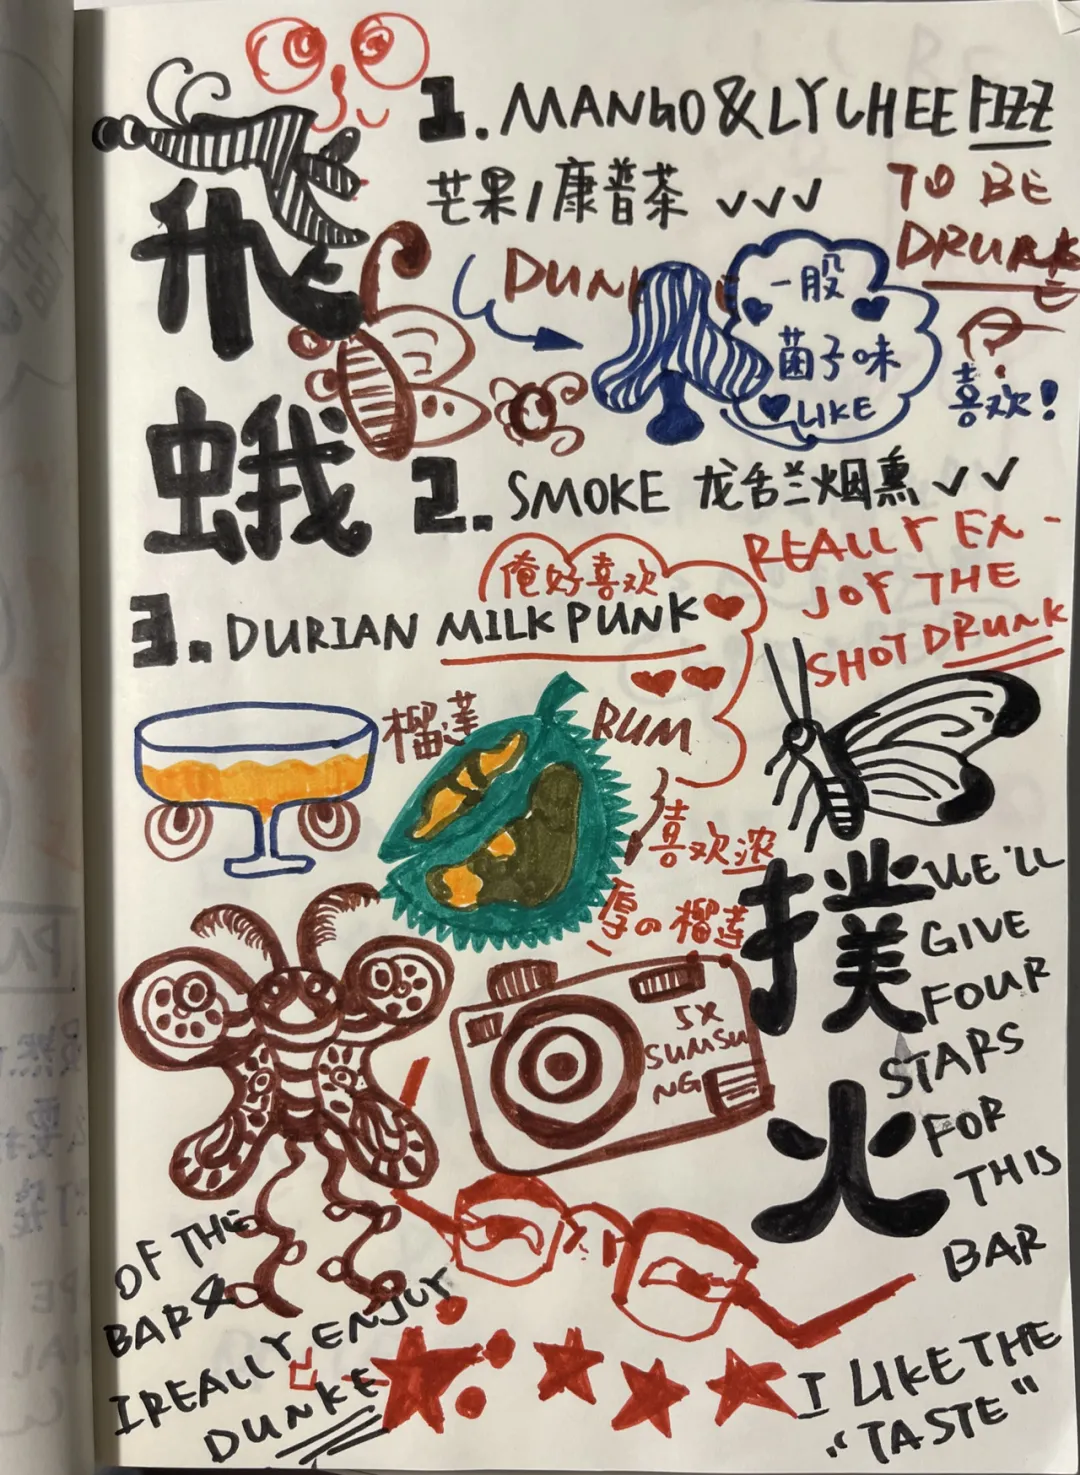 飛蛾撲火
1. MANGO & LYCHEE FIZZ
芒果/康普茶 ✓✓✓
TO BE
DRUNK
一股
菌子味
LIKE
喜欢!
2. SMOKE 龙舌兰烟熏 ✓✓
REALLY EN-
JOY THE
SHOT DRUNK
俺好喜欢
3. DURIAN MILK PUNK
榴莲
RUM
喜欢浓
厚の榴莲
5X
SUMSU
NG
WE'LL
GIVE
FOUR
STARS
FOR
THIS
BAR
I LIKE THE
"TASTE"
OF THE
BAR &
I REALLY ENJOY
DUNKE